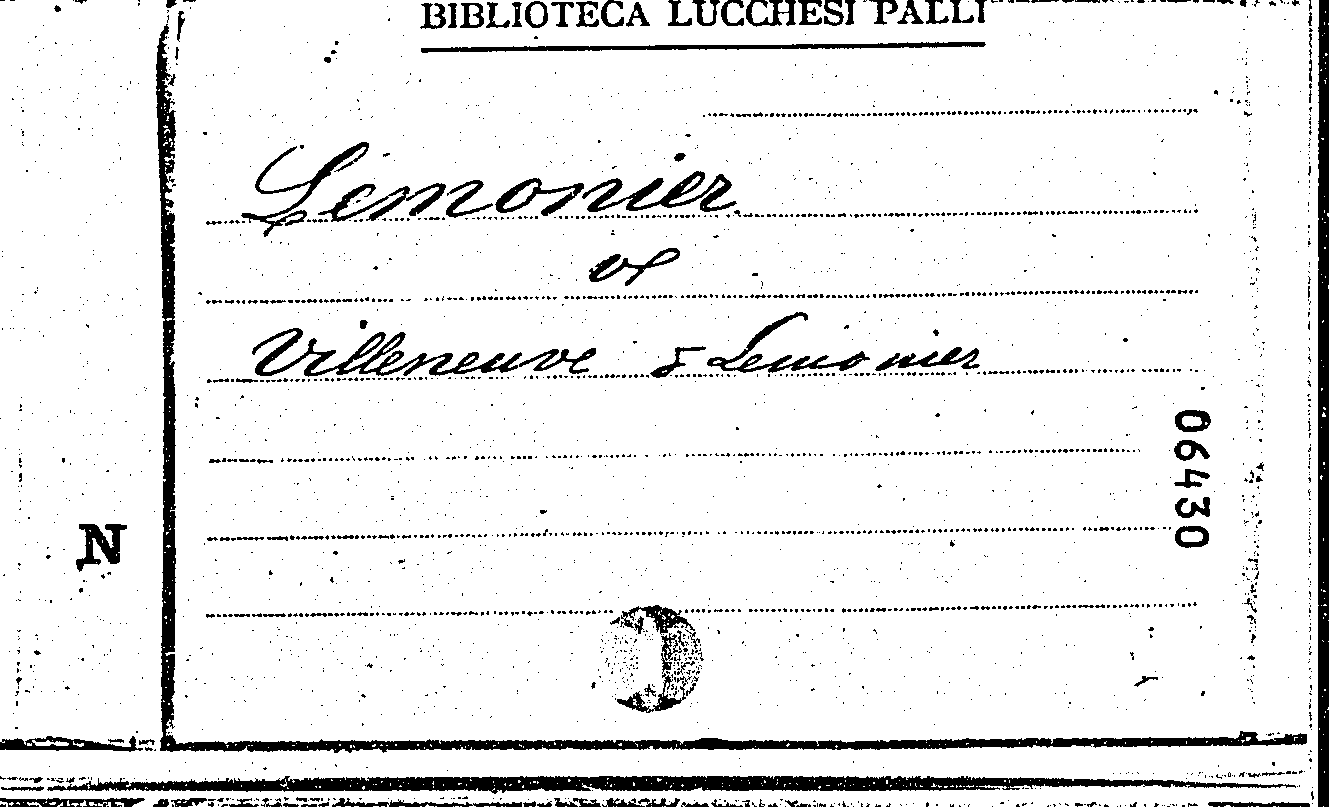 BIBLIOTECA LUCCHESI PALLI
Lemonier
Villeneuve & Lemonier
06430
N